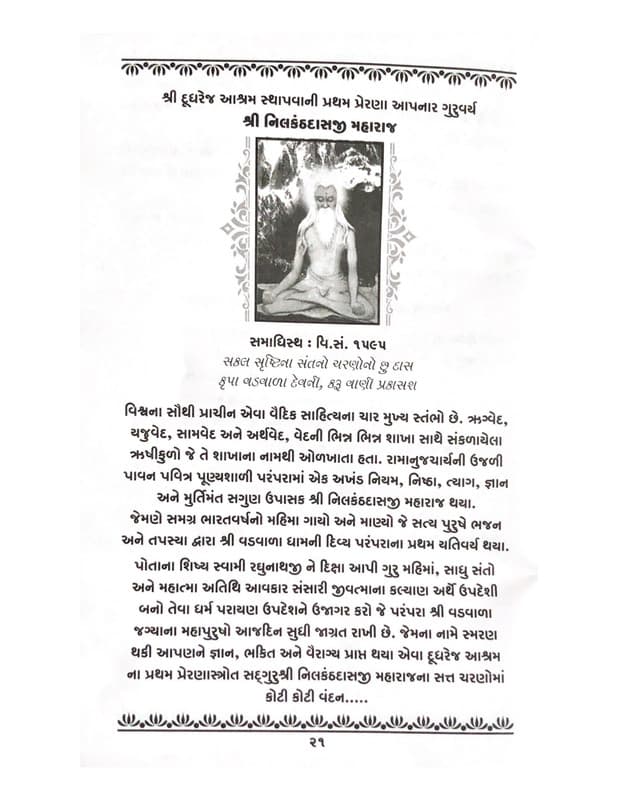 શ્રી દૂધરેજ આશ્રમ સ્થાપવાની પ્રથમ પ્રેરણા આપનાર ગુરુવર્ય
શ્રી નિલકંઠદાસજી મહારાજ
સમાધિસ્થ : વિ.સં. ૧૫૯૫
સકલ સૃષ્ટિના સંતનો ચરણોનો છુ દાસ
કૃપા વડવાળા દેવની, કરૂ વાણી પ્રકાસશ
વિશ્વના સૌથી પ્રાચીન એવા વૈદિક સાહિત્યના ચાર મુખ્ય સ્તંભો છે. ઋગ્વેદ,
યજુવેદ, સામવેદ અને અર્થવેદ, વેદની ભિન્ન ભિન્ન શાખા સાથે સંકળાયેલા
ઋષીકુળો જે તે શાખાના નામથી ઓળખાતા હતા. રામાનુજચાર્યની ઉજળી
પાવન પવિત્ર પૂણ્યશાળી પરંપરામાં એક અખંડ નિયમ, નિષ્ઠા, ત્યાગ, જ્ઞાન
અને મુર્તિમંત સગુણ ઉપાસક શ્રી નિલકંઠદાસજી મહારાજ થયા.
જેમણે સમગ્ર ભારતવર્ષનો મહિમા ગાયો અને માણ્યો જે સત્ય પુરુષે ભજન
અને તપસ્યા દ્વારા શ્રી વડવાળા ધામની દિવ્ય પરંપરાના પ્રથમ યતિવર્ય થયા.
પોતાના શિષ્ય સ્વામી રઘુનાથજી ને દિક્ષા આપી ગુરુ મહિમાં, સાધુ સંતો
અને મહાત્મા અતિથિ આવકાર સંસારી જીવત્માના કલ્યાણ અર્થે ઉપદેશી
બનો તેવા ધર્મ પરાયણ ઉપદેશને ઉજાગર કરો જે પરંપરા શ્રી વડવાળા
જગ્યાના મહાપુરુષો આજદિન સુધી જાગ્રત રાખી છે. જેમના નામે સ્મરણ
થકી આપણને જ્ઞાન, ભક્તિ અને વૈરાગ્ય પ્રાપ્ત થયા એવા દૂધરેજ આશ્રમ
ના પ્રથમ પ્રેરણાસ્ત્રોત સદ્ગુરુશ્રી નિલકંઠદાસજી મહારાજના સત્ત ચરણોમાં
કોટી કોટી વંદન.....
૨૧